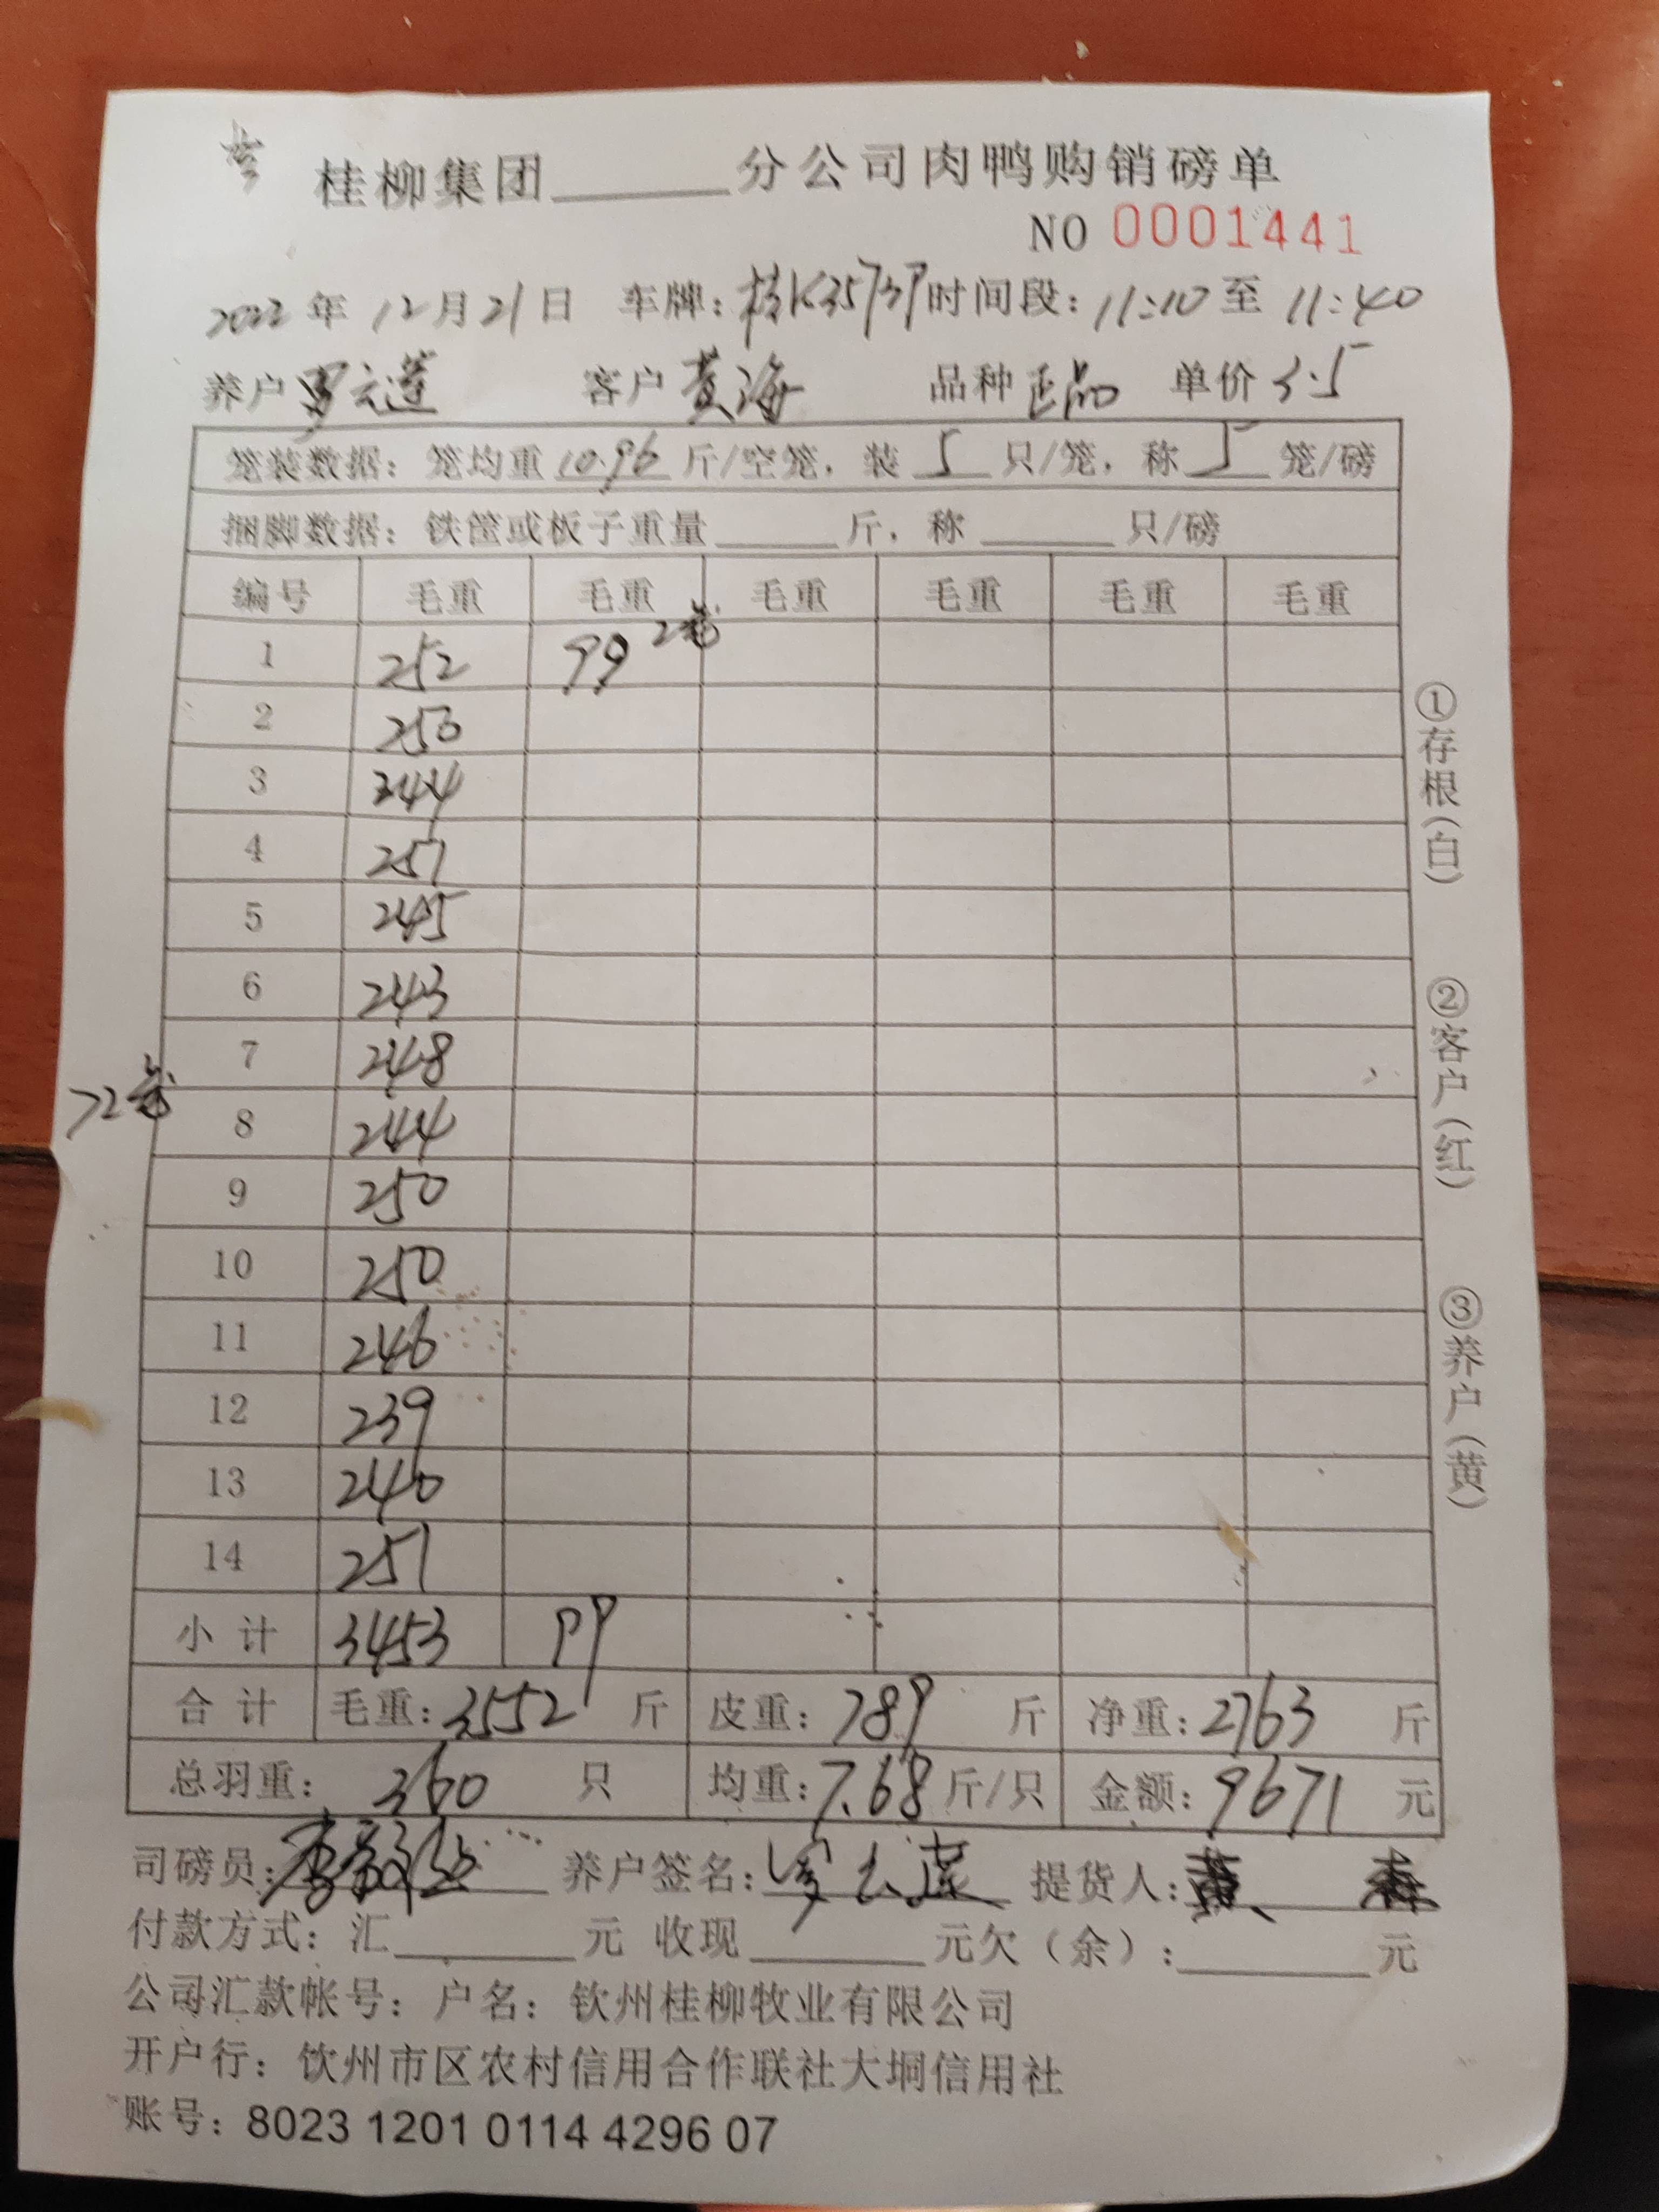 桂柳集团______分公司肉鸭购销磅单
NO 0001441
2022年12月21日 车牌:桂K35737 时间段:11:10至11:40
养户 罗云莲 客户 黄海 品种 正品 单价 3.5
笼装数据:笼均重10.96斤/空笼,装5只/笼,称5笼/磅
捆脚数据:铁筐或板子重量______斤,称______只/磅
编号 毛重 毛重 毛重 毛重 毛重 毛重
1 252 99 2笼
2 250
3 244
4 251
5 245
6 243
7 248
72笼
8 244
9 250
10 250
11 246
12 239
13 240
14 251
小计 3453 99
合计 毛重:3552斤 皮重:789斤 净重:2763斤
总羽重:360只 均重:7.68斤/只 金额:9671元
司磅员: 养户签名:罗云莲 提货人:黄
付款方式:汇______元 收现______元欠(余):______元
公司汇款帐号:户名:钦州桂柳牧业有限公司
开户行:钦州市区农村信用合作联社大垌信用社
账号:8023 1201 0114 4296 07
①存根(白)
②客户(红)
③养户(黄)